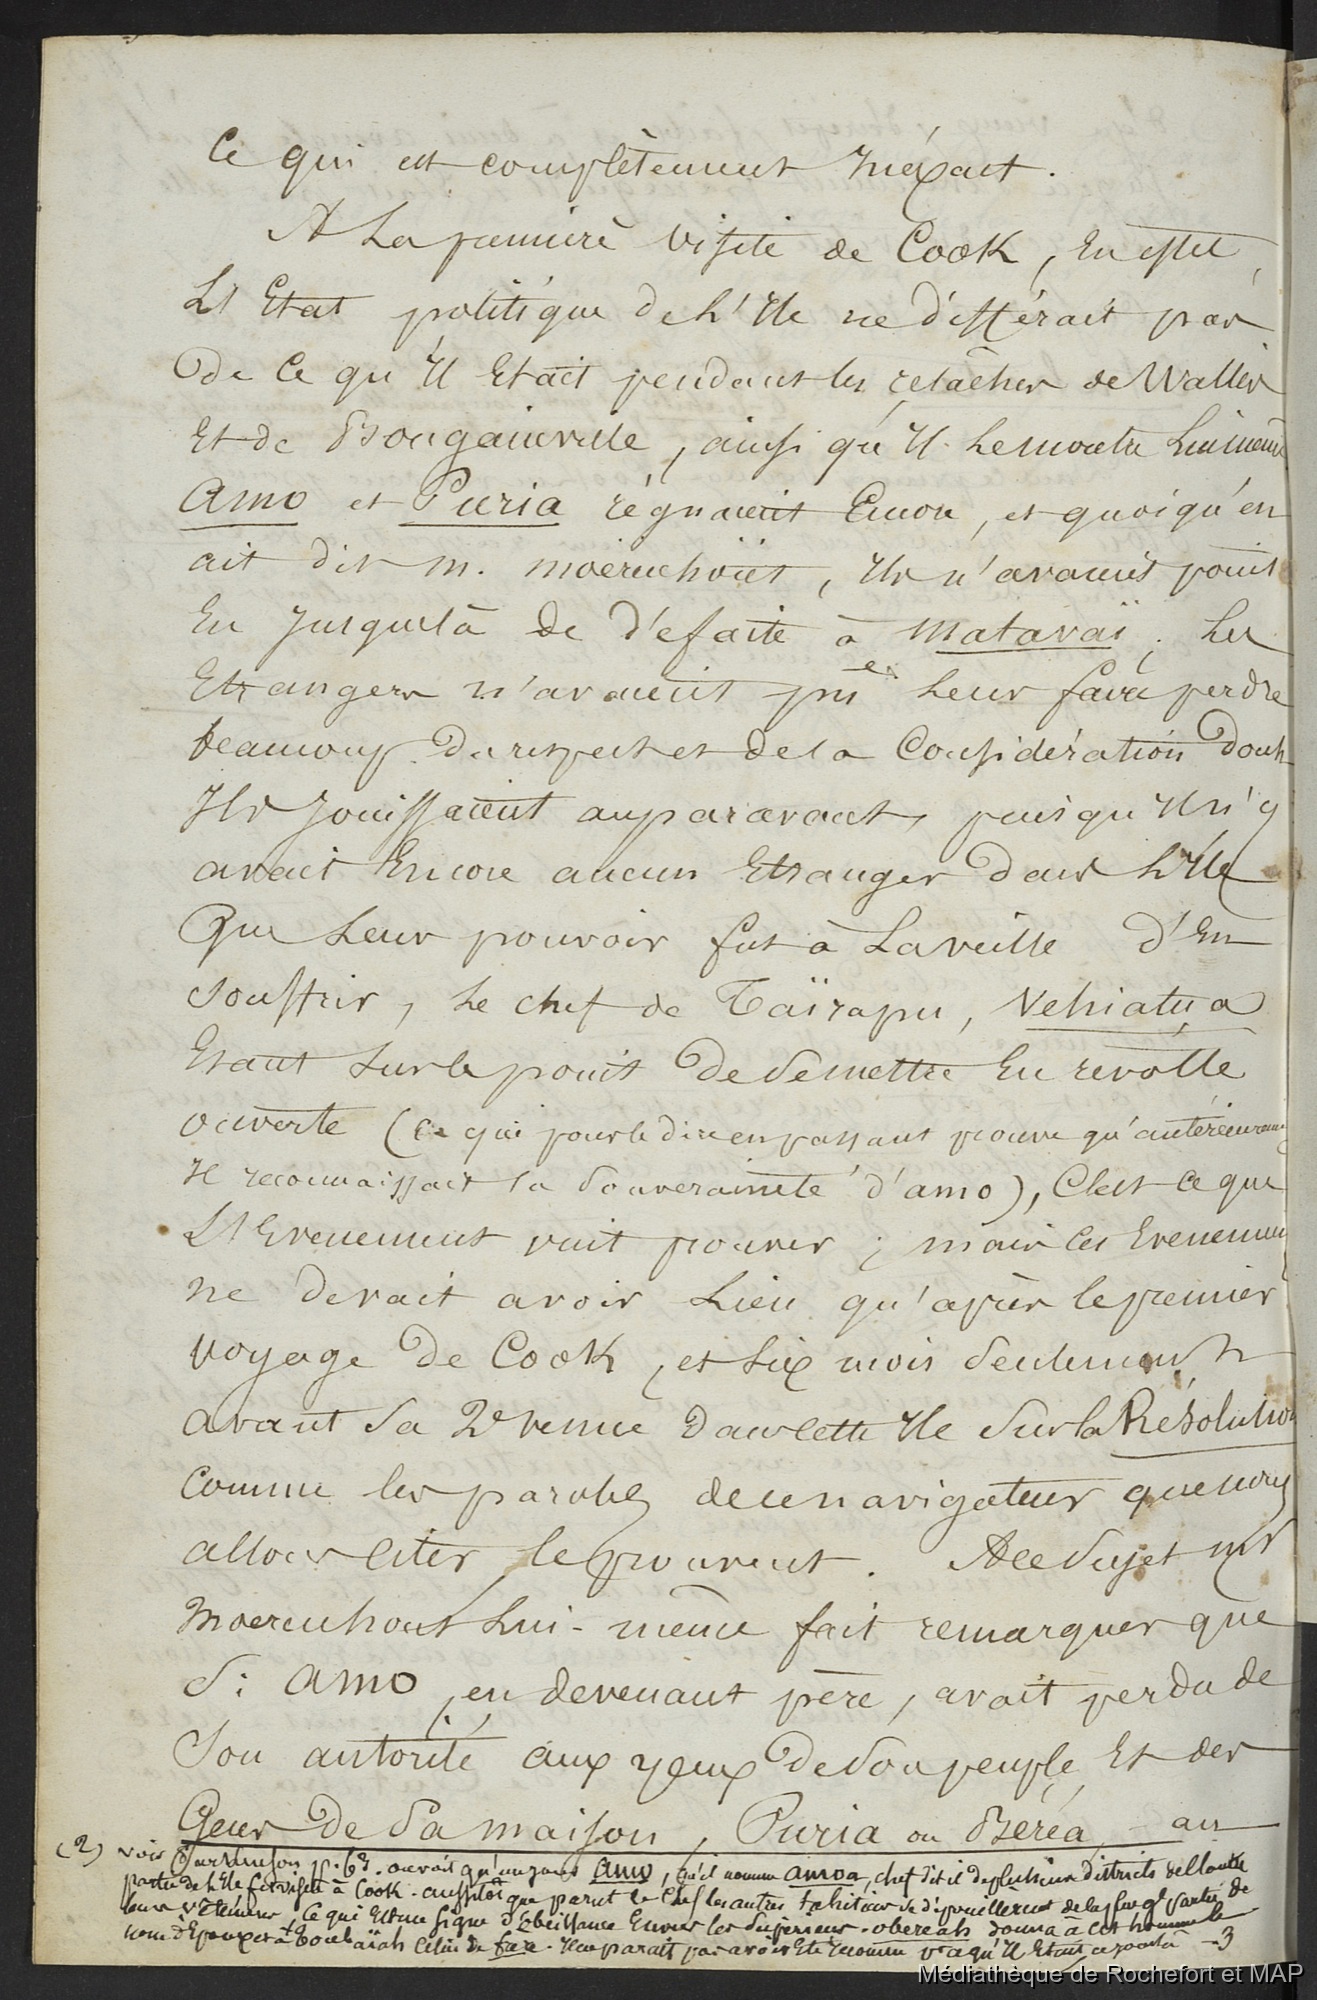 Ce qui est complètement Inéxact.
A La première visite de Cook, En effet,
L'Etat politique de L'Ile ne différait pas
De Ce qu'Il Etait pendant les relâches de Wallis
Et de Bougainville, ainsi qu'Il Le montre Lui même
Amo et Puria régnaient Encore, et quoiqu'en
ait dit M. Moërenhoüt, Ils n'avaient point
Eu Jusque là de défaite à Mataraï. Les
Etrangers n'avaient pu Leur faire perdre
beaucoup Du respect et de la Considération Dont
Ils Jouissaient auparavant, puisqu'Il n'y
avait Encore aucun Etranger Dans L'Ile
Que Leur pouvoir fut à La veille D'En
Souffrir, Le chef de Taïrapu, Vehiatua
Etant Sur le point De Se mettre En révolte
ouverte (Ce qui pour le dire en passant prouve qu'antérieurement
Il reconnaissait la Souveraineté d'amo), C'est ce que
L'Evenement vint prouver ; mais Ces Evenemens
ne devait avoir Lieu qu'après le premier
Voyage De Cook, et Six mois Seulement
avant Sa 2e venue Dans Cette Ile Sur la Résolution
Comme les paroles de ce navigateur que nous
allons Citer le prouvent. A Ce Sujet Mr
Moerenhout Lui-même fait remarquer que
Si Amo, en devenant père, avait perdu de
Son autorité aux yeux De Son peuple Et des
Gens De Sa maison, Puria ou Béréa, au
(2) voir Parkinson p. 63. on voit qu'un jour Amo, qu'il nomme Amoa, chef dit-il de plusieurs Districts de l'autre
partie de L'Ile fit visite à Cook. aussitôt que parut le Chef les autres tahitiens se dépouillèrent de la plus gde partie de
leurs vêtemens Ce qui Est un Signe d'obéissance Envers les Supérieurs. obereah donna à Cet homme le
nom d'Epoux et à Toubaïah Celui de frère. Il ne parait pas avoir Eté reconnu -3
Médiathèque de Rochefort et MAP